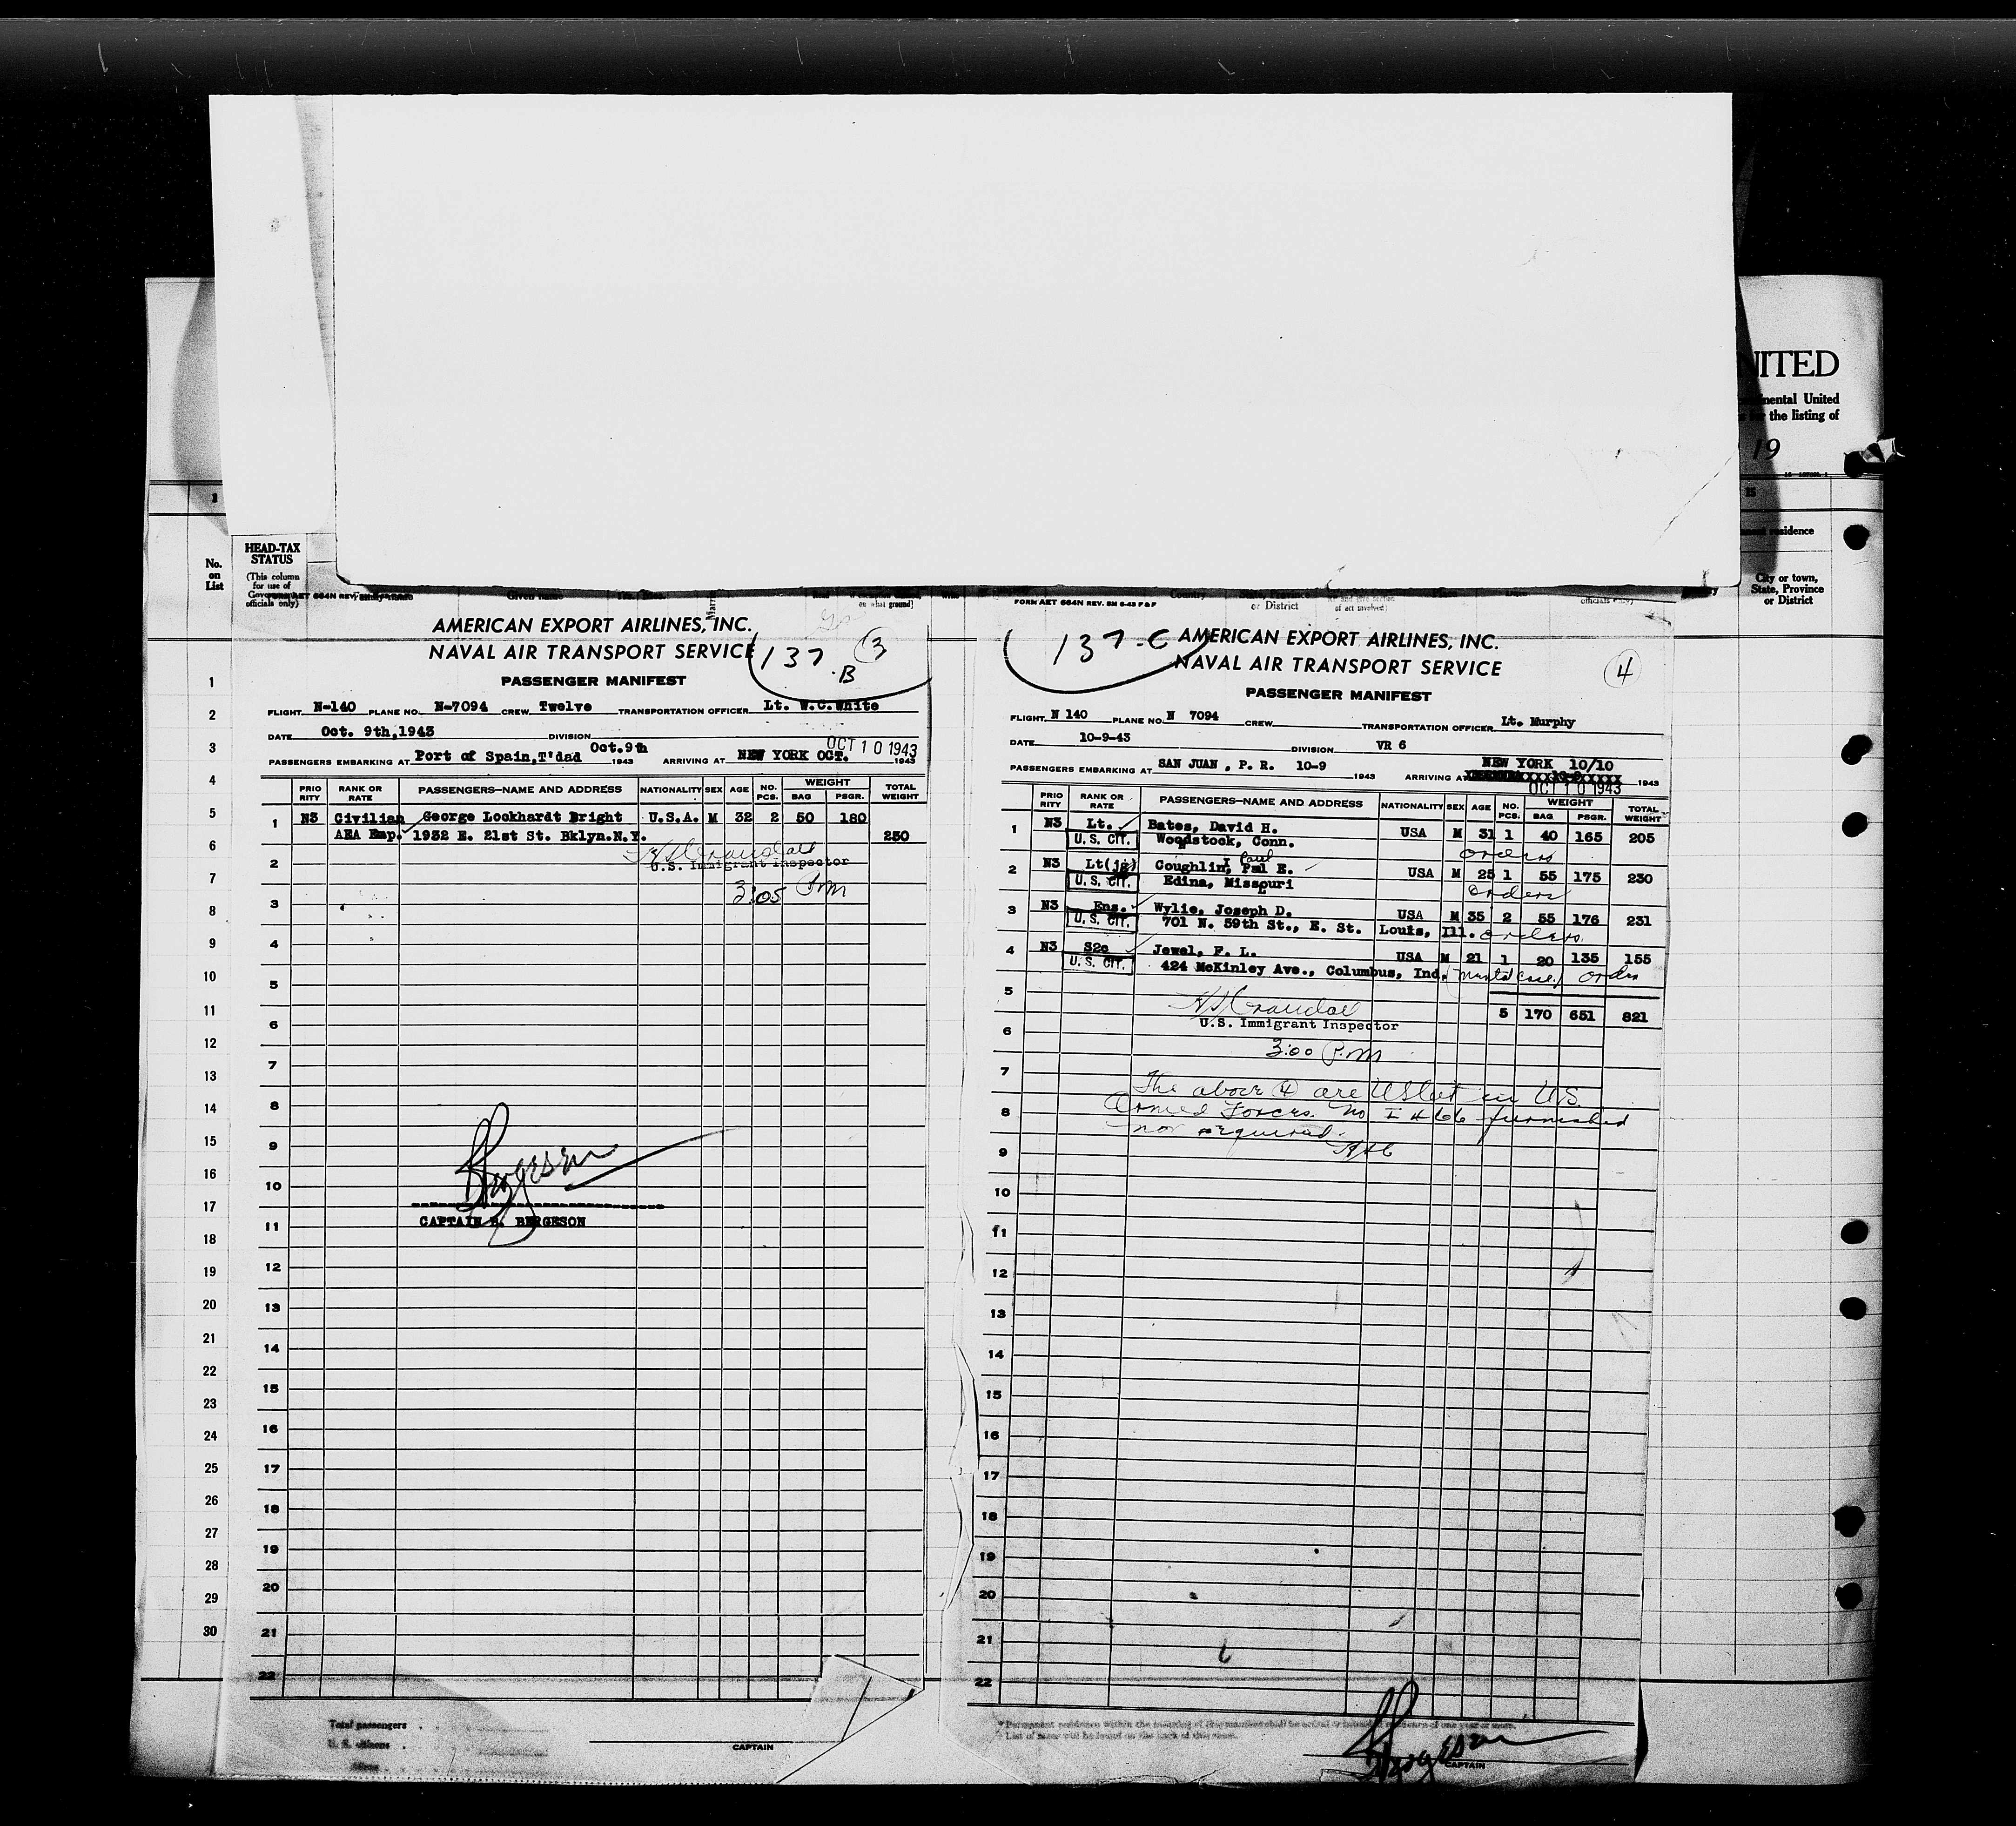 UNITED
Continental United
for the listing of
19
1
15
No.
on
List
HEAD-TAX
STATUS
(This column
for use of
Government
officials only)
Given name
Country
State, Province
or District
residence
City or town,
State, Province
or District
1
2
3
4
5
6
7
8
9
10
11
12
13
14
15
16
17
18
19
20
21
22
23
24
25
26
27
28
29
30
AMERICAN EXPORT AIRLINES, INC.
NAVAL AIR TRANSPORT SERVICE
137 B
3
PASSENGER MANIFEST
FLIGHT N-140 PLANE NO. N-7094 CREW Twelve TRANSPORTATION OFFICER Lt. W.C.White
DATE Oct. 9th,1943 DIVISION
OCT 10 1943
PASSENGERS EMBARKING AT Port of Spain,T'dad Oct.9th 1943 ARRIVING AT NEW YORK OCT. 1943
PRIORITY RANK OR RATE PASSENGERS—NAME AND ADDRESS NATIONALITY SEX AGE NO. PCS. WEIGHT BAG PSGR. TOTAL WEIGHT
1 N3 Civilian George Lookhardt Bright U.S.A. M 32 2 50 180
AEA Emp. 1932 E. 21st St. Bklyn.N.Y. 230
2 U.S. Immigrant Inspector
3:05 P.m
3
4
5
6
7
8
9
10
CAPTAIN B. BERGESON
11
12
13
14
15
16
17
18
19
20
21
22
Total passengers
U. S. citizens
Aliens
CAPTAIN
FORM AET 664N REV. 5M 6-43 P&F
137-C
AMERICAN EXPORT AIRLINES, INC.
NAVAL AIR TRANSPORT SERVICE
4
PASSENGER MANIFEST
FLIGHT N 140 PLANE NO. N 7094 CREW TRANSPORTATION OFFICER Lt. Murphy
DATE 10-9-43 DIVISION VR 6
NEW YORK 10/10
PASSENGERS EMBARKING AT SAN JUAN , P. R. 10-9 1943 ARRIVING AT 1943
OCT 10 1943
PRIORITY RANK OR RATE PASSENGERS—NAME AND ADDRESS NATIONALITY SEX AGE NO. PCS. WEIGHT BAG PSGR. TOTAL WEIGHT
1 N3 Lt. Bates, David H. USA M 31 1 40 165 205
U. S. CIT. Woodstock, Conn. orders
2 N3 Lt(jg) Coughlin, Pal E. Paul USA M 25 1 55 175 230
U. S. CIT. Edina, Missouri orders
3 N3 Ens. Wylie, Joseph D. USA M 35 2 55 176 231
U. S. CIT. 701 N. 59th St., E. St. Louis, Ill. orders
4 N3 S2c Jewel, F. L. USA M 21 1 20 135 155
U. S. CIT. 424 McKinley Ave., Columbus, Ind. (mental case) orders
5 5 170 651 821
U.S. Immigrant Inspector
6
3:00 P.m
7
The above 4 are US Cit in U.S.
8 Armed Forces. No I 466 furnished
nor required.
9
10
11
12
13
14
15
16
17
18
19
20
21
22
* Permanent residence within the meaning of this manifest shall be actual or intended residence of one year or more.
CAPTAIN